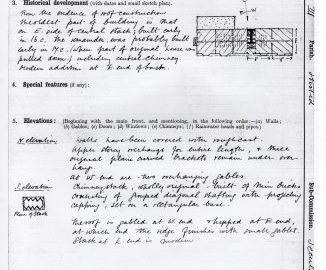 3. Historical development (with dates and small sketch plan).
From the evidence of roof construction
the oldest part of building is that
on E. side of central stack, built early
in 16 c. The remainder, was probably built
early in 17 c. (when part of original house was
pulled down) including central chimney.
Modern addition at E. end of house.
4. Special features (if any):
5. Elevations: (Beginning with the main front, and mentioning, in the following order:—(a) Walls;
(b) Gables; (c) Doors; (d) Windows; (e) Chimneys; (f) Rainwater heads and pipes.)
N. elevation walls have been covered with roughcast
Upper storey overhangs for entire length, & three
original plain curved brackets remain under over-
hang.
At W. end are two overhanging gables.
S. elevation Chimney stack, wholly original - built of thin bricks
consisting of grouped diagonal shafting with projecting
capping, set on a rectangular base.
Plan of Stack
The roof is gabled at W. end & hipped at E. end,
at which end the ridge finishes with small gables.
Stack at E. end is modern
Parish.
Sub-Commission.